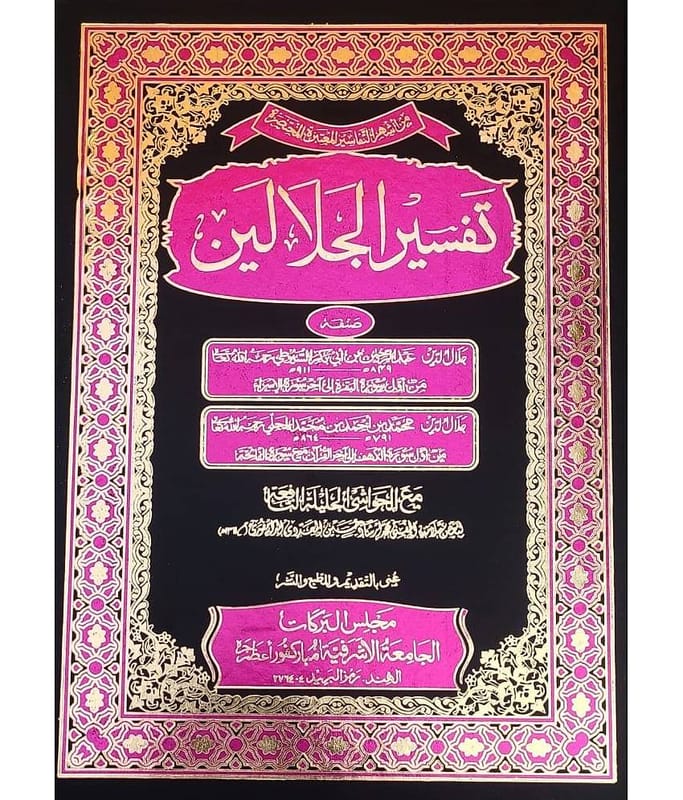 من أشهر التفاسير المعتبرة المختصرة
تفسير الجلالين
صنفه
جلال الدين عبد الرحمن بن أبي بكر السيوطي رحمه الله تعالى
٨٤٩ھ ٩١١ھ
من أول سورة البقرة إلى آخر سورة الإسراء
جلال الدين محمد بن أحمد بن محمد المحلي رحمه الله تعالى
٧٩١ھ ٨٦٤ھ
من أول سورة الكهف إلى آخر القرآن مع سورة الفاتحة
مع الحواشي الجليلة النافعة
عني بالتقديم والطبع والنشر
مجلس البركات
الجامعة الأشرفية مبارکفور أعظم جراه
الهند. رمز البريد ٢٧٦٤٠٤